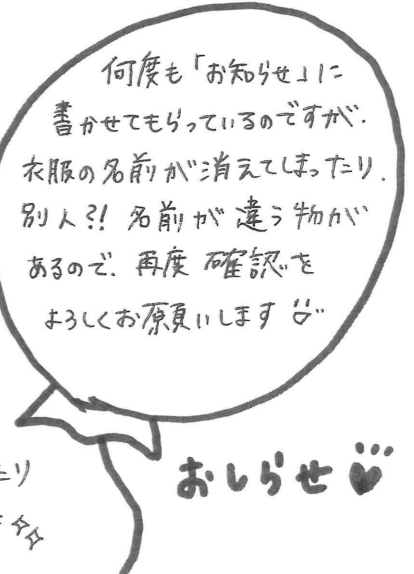 何度も「お知らせ」に
書かせてもらっているのですが、
衣服の名前が消えてしまったり、
別人?! 名前が違う物が
あるので、再度確認を
よろしくお願いします
おしらせ
たり